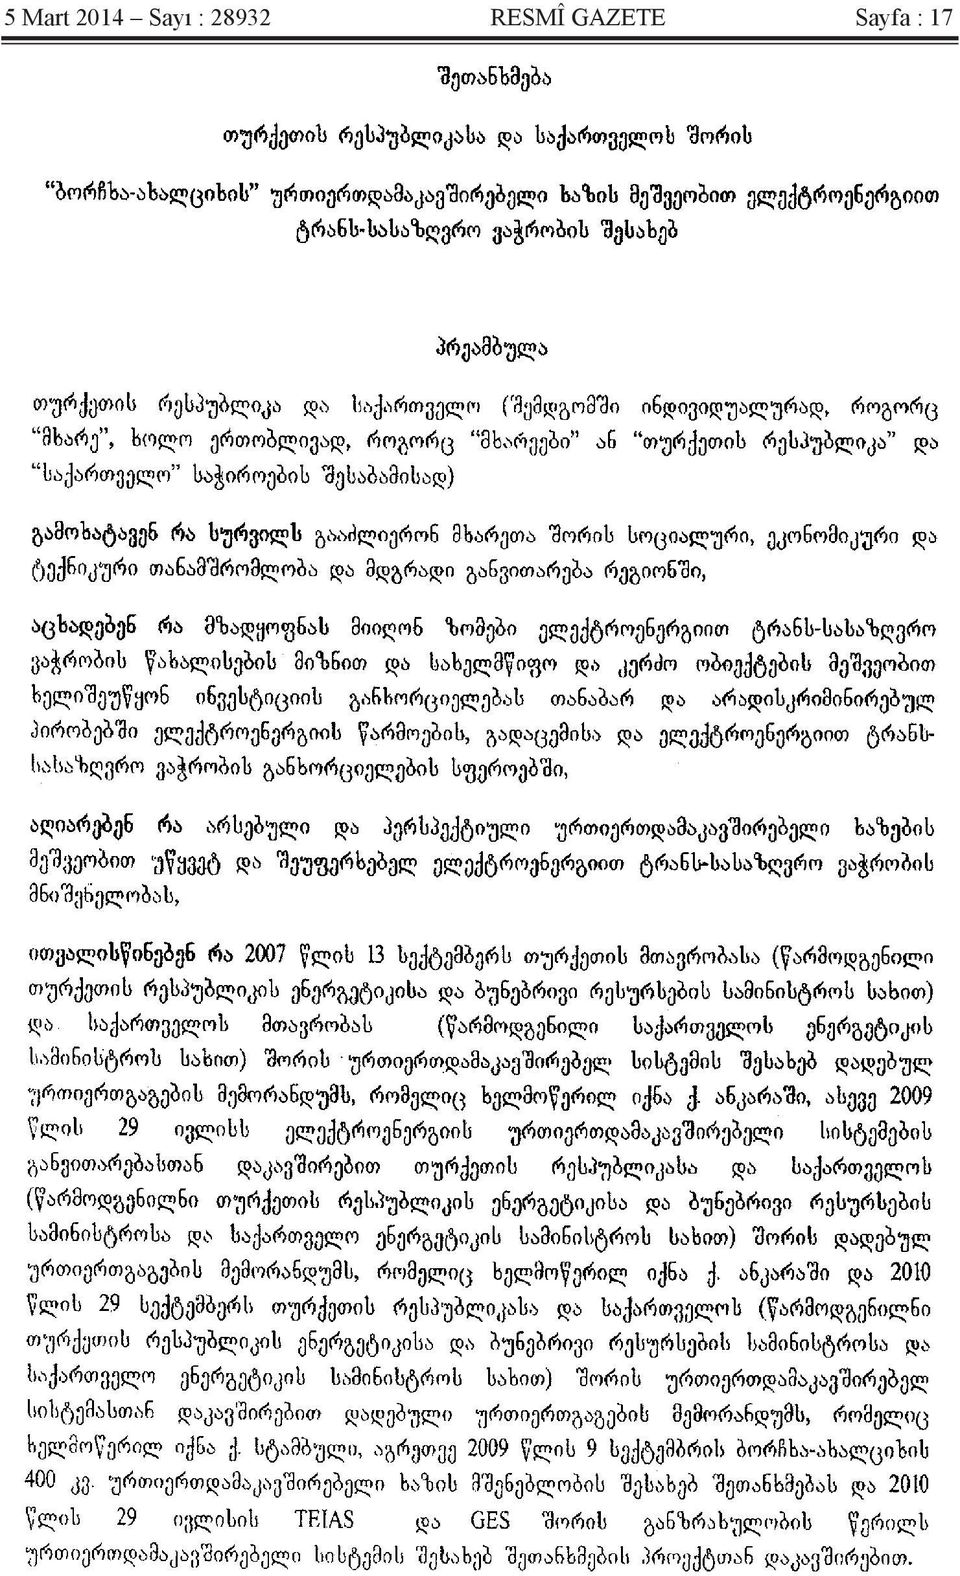 5 Mart 2014 – Sayı : 28932 RESMÎ GAZETE Sayfa : 17
შეთანხმება
თურქეთის რესპუბლიკასა და საქართველოს შორის
“ბორჩხა-ახალციხის” ურთიერთდამაკავშირებელი ხაზის მეშვეობით ელექტროენერგიით
ტრანს-სასაზღვრო ვაჭრობის შესახებ
პრეამბულა
თურქეთის რესპუბლიკა და საქართველო (შემდგომში ინდივიდუალურად, როგორც
“მხარე”, ხოლო ერთობლივად, როგორც “მხარეები” ან “თურქეთის რესპუბლიკა” და
“საქართველო” საჭიროების შესაბამისად)
გამოხატავენ რა სურვილს გააძლიერონ მხარეთა შორის სოციალური, ეკონომიკური და
ტექნიკური თანამშრომლობა და მდგრადი განვითარება რეგიონში,
აცხადებენ რა მზადყოფნას მიიღონ ზომები ელექტროენერგიით ტრანს-სასაზღვრო
ვაჭრობის წახალისების მიზნით და სახელმწიფო და კერძო ობიექტების მეშვეობით
ხელიშეუწყონ ინვესტიციის განხორციელებას თანაბარ და არადისკრიმინირებულ
პირობებში ელექტროენერგიის წარმოების, გადაცემისა და ელექტროენერგიით ტრანს-
სასაზღვრო ვაჭრობის განხორციელების სფეროებში,
აღიარებენ რა არსებული და პერსპექტიული ურთიერთდამაკავშირებელი ხაზების
მეშვეობით უწყვეტ და შეუფერხებელ ელექტროენერგიით ტრანს-სასაზღვრო ვაჭრობის
მნიშვნელობას,
ითვალისწინებენ რა 2007 წლის 13 სექტემბერს თურქეთის მთავრობასა (წარმოდგენილი
თურქეთის რესპუბლიკის ენერგეტიკისა და ბუნებრივი რესურსების სამინისტროს სახით)
და საქართველოს მთავრობას (წარმოდგენილი საქართველოს ენერგეტიკის
სამინისტროს სახით) შორის ურთიერთდამაკავშირებელ სისტემის შესახებ დადებულ
ურთიერთგაგების მემორანდუმს, რომელიც ხელმოწერილ იქნა ქ. ანკარაში, ასევე 2009
წლის 29 ივლისს ელექტროენერგიის ურთიერთდამაკავშირებელი სისტემების
განვითარებასთან დაკავშირებით თურქეთის რესპუბლიკასა და საქართველოს
(წარმოდგენილნი თურქეთის რესპუბლიკის ენერგეტიკისა და ბუნებრივი რესურსების
სამინისტროსა და საქართველო ენერგეტიკის სამინისტროს სახით) შორის დადებულ
ურთიერთგაგების მემორანდუმს, რომელიც ხელმოწერილ იქნა ქ. ანკარაში და 2010
წლის 29 სექტემბერს თურქეთის რესპუბლიკასა და საქართველოს (წარმოდგენილნი
თურქეთის რესპუბლიკის ენერგეტიკისა და ბუნებრივი რესურსების სამინისტროსა და
საქართველო ენერგეტიკის სამინისტროს სახით) შორის ურთიერთდამაკავშირებელ
სისტემასთან დაკავშირებით დადებული ურთიერთგაგების მემორანდუმს, რომელიც
ხელმოწერილ იქნა ქ. სტამბული, აგრეთვე 2009 წლის 9 სექტემბრის ბორჩხა-ახალციხის
400 კვ. ურთიერთდამაკავშირებელი ხაზის მშენებლობის შესახებ შეთანხმებას და 2010
წლის 29 ივლისის TEIAS და GES შორის განზრახულობის წერილს
ურთიერთდამაკავშირებელი სისტემის შესახებ შეთანხმების პროექტთან დაკავშირებით.